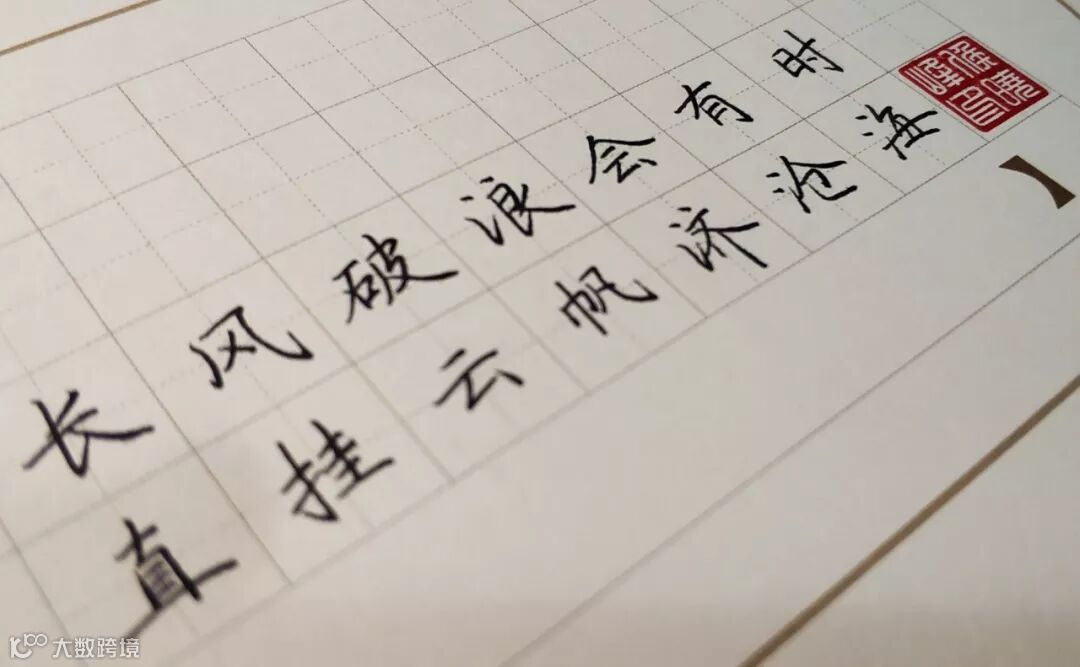 长风破浪会有时
直挂云帆济沧海
大数跨境